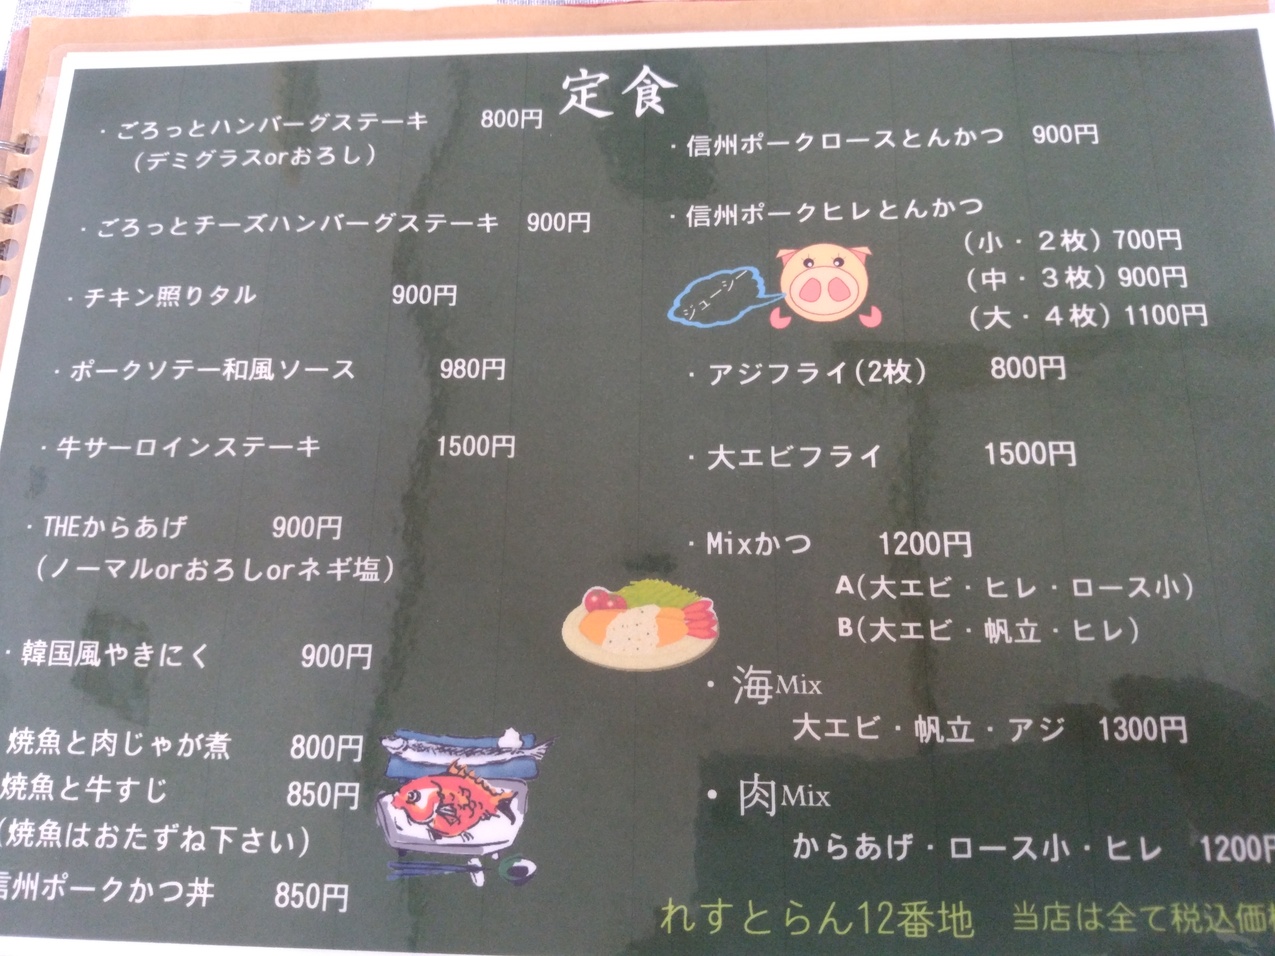 定食
・ごろっとハンバーグステーキ 800円
(デミグラスorおろし)
・ごろっとチーズハンバーグステーキ 900円
・チキン照りタル 900円
・ポークソテー和風ソース 980円
・牛サーロインステーキ 1500円
・THEからあげ 900円
(ノーマルorおろしorネギ塩)
・韓国風やきにく 900円
焼魚と肉じゃが煮 800円
焼魚と牛すじ 850円
(焼魚はおたずね下さい)
信州ポークかつ丼 850円
・信州ポークロースとんかつ 900円
・信州ポークヒレとんかつ
(小・2枚) 700円
(中・3枚) 900円
(大・4枚) 1100円
ジューシー
・アジフライ(2枚) 800円
・大エビフライ 1500円
・Mixかつ 1200円
A(大エビ・ヒレ・ロース小)
B(大エビ・帆立・ヒレ)
・海Mix
大エビ・帆立・アジ 1300円
・肉Mix
からあげ・ロース小・ヒレ 1200円
れすとらん12番地 当店は全て税込価